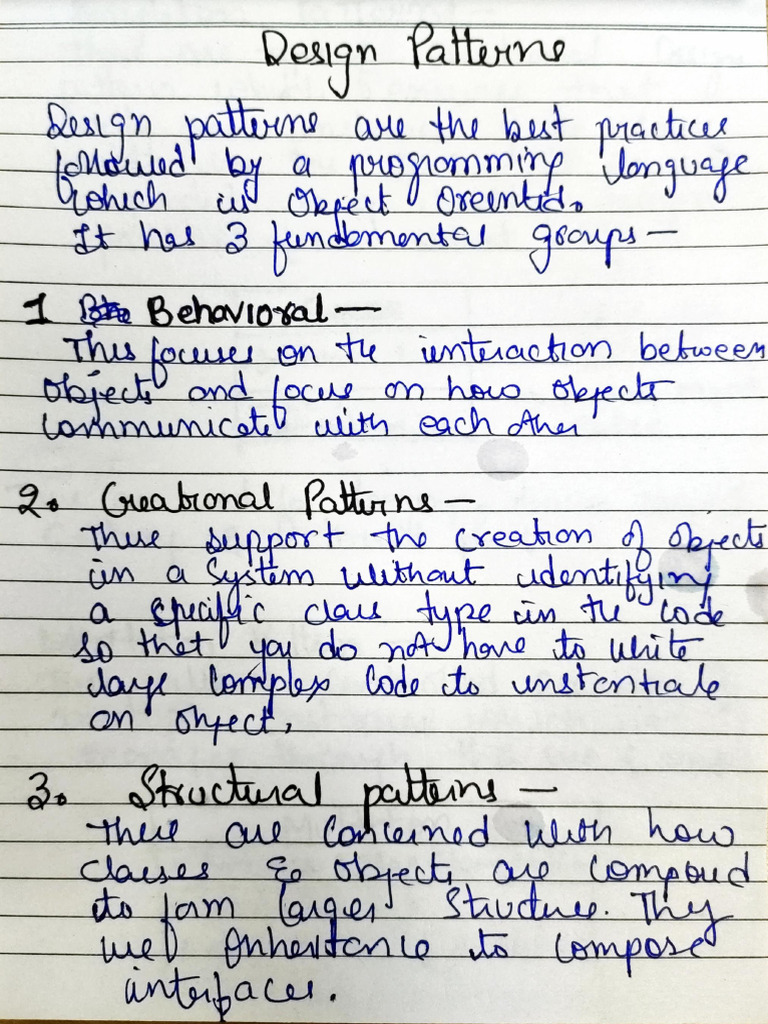 Design Patterns
Design patterns are the best practices
followed by a programming language
which is Object Oreented.
It has 3 fundamental groups -
1 Behavioral -
This focuses on the interaction between
objects and focus on how objects
communicate with each other
2. Creational Patterns -
These support the creation of objects
in a system without identifying
a specific class type in the code
so that you do not have to write
large complex code to instantiate
an object.
3. Structural patterns -
These are concerned with how
classes & objects are composed
to form larger structure. They
use inheritance to compose
interfaces.